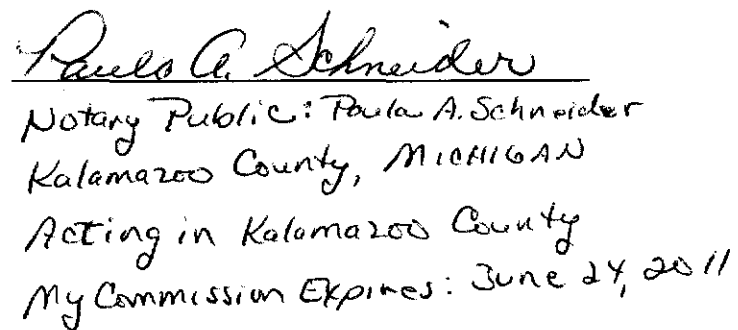 Paula A. Schneider
Notary Public: Paula A. Schneider
Kalamazoo County, MICHIGAN
Acting in Kalamazoo County
My Commission Expires: June 24, 2011